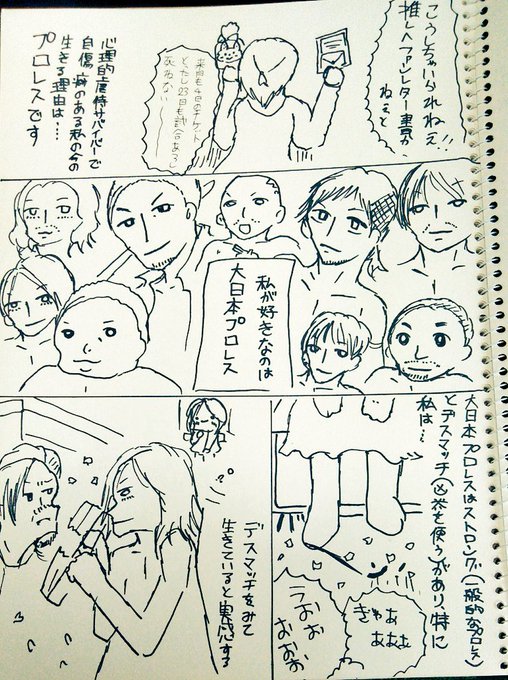 こうしちゃいられねえ!!
推しへファンレター書か
ねぇと
来月も4日のチケット
とったし23日も試合あるし
死ねない
心理的虐待サバイバーで
自傷癖のある私の今の
生きる理由は…
プロレスです
私が好きなのは
大日本プロレス
大日本プロレスはストロング(一般的なプロレス)
とデスマッチ(凶器を使う)があり、特に
私は…
きゃあ
あああ
うおお
おおお
デスマッチをみて
生きていると実感する